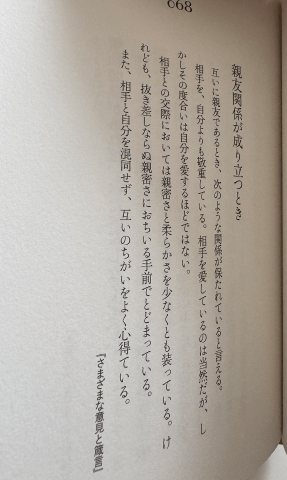 668
親友関係が成り立つとき
互いに親友であるとき、次のような関係が保たれていると言える。
相手を、自分よりも敬重している。相手を愛しているのは当然だが、し
かしその度合いは自分を愛するほどではない。
相手との交際においては親密さと柔らかさを少なくとも装っている。け
れども、抜き差しならぬ親密さにおちいる手前でとどまっている。
また、相手と自分を混同せず、互いのちがいをよく心得ている。
『さまざまな意見と箴言』